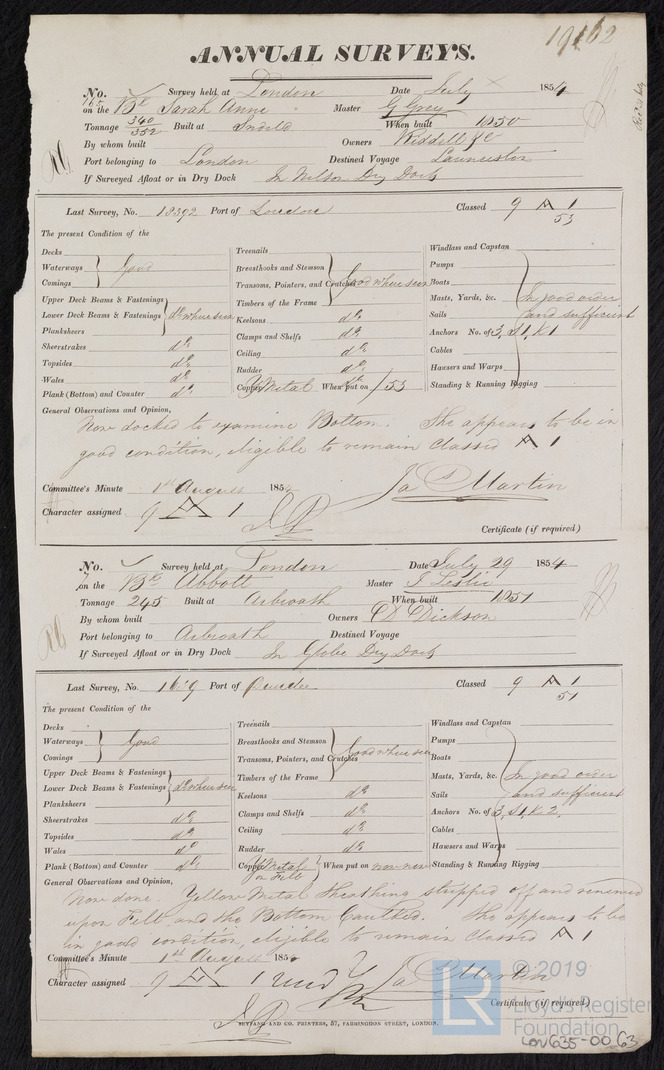 19162
ANNUAL SURVEYS.
No. Survey held at London Date July 1854
on the Bk Sarah Anne Master G Grey
Tonnage 340/352 Built at When built 1850
By whom built Owners Riddell & Co
Port belonging to London Destined Voyage Launceston
If Surveyed Afloat or in Dry Dock In Nelson Dry Dock
Last Survey, No. 18392 Port of London Classed 9 A 1
53
The present Condition of the
Decks
Waterways Good
Comings
Upper Deck Beams & Fastenings
Lower Deck Beams & Fastenings do where seen
Planksheers
Sheerstrakes do
Topsides do
Wales do
Plank (Bottom) and Counter do
Treenails
Breasthooks and Stemson
Transoms, Pointers, and Crutches Good where seen
Timbers of the Frame
Keelsons do
Clamps and Shelfs do
Ceiling do
Rudder do
Copper Y Metal When put on /53
Windlass and Capstan
Pumps
Boats
Masts, Yards, &c. In good order
Sails and sufficient
Anchors No. of 3, S1, K1
Cables
Hawsers and Warps
Standing & Running Rigging
General Observations and Opinion,
Now docked to examine Bottom. She appears to be in
good condition, eligible to remain Classed A 1
Committee's Minute 1st August 1854
Jas Martin
Character assigned 9 A 1
Certificate (if required)
No. Survey held at London Date July 29 1854
on the Bk Abbott Master J Leslie
Tonnage 245 Built at Arbroath When built 1851
By whom built Owners D Dickson
Port belonging to Arbroath Destined Voyage
If Surveyed Afloat or in Dry Dock In Globe Dry Dock
Last Survey, No. Port of Dundee Classed 9 A 1
51
The present Condition of the
Decks
Waterways Good
Comings
Upper Deck Beams & Fastenings
Lower Deck Beams & Fastenings do where seen
Planksheers
Sheerstrakes do
Topsides do
Wales do
Plank (Bottom) and Counter do
Treenails
Breasthooks and Stemson
Transoms, Pointers, and Crutches Good where seen
Timbers of the Frame
Keelsons do
Clamps and Shelfs do
Ceiling do
Rudder do
Copper Y Metal on Felt When put on now new
Windlass and Capstan
Pumps
Boats
Masts, Yards, &c. In good order
Sails and sufficient
Anchors No. of 3, S1, K2,
Cables
Hawsers and Warps
Standing & Running Rigging
General Observations and Opinion,
Now done. Yellow Metal Sheathing stripped off and renewed
upon Felt and the Bottom Caulked. She appears to be
in good condition, eligible to remain Classed A 1
Committee's Minute 1st August 185
Jas Martin
Character assigned 9 A 1
Certificate (if required)
SEYFANG AND CO. PRINTERS, 57, FARRINGDON STREET, LONDON.
© 2019
LR Lloyd's Register
Foundation
LON635-0063